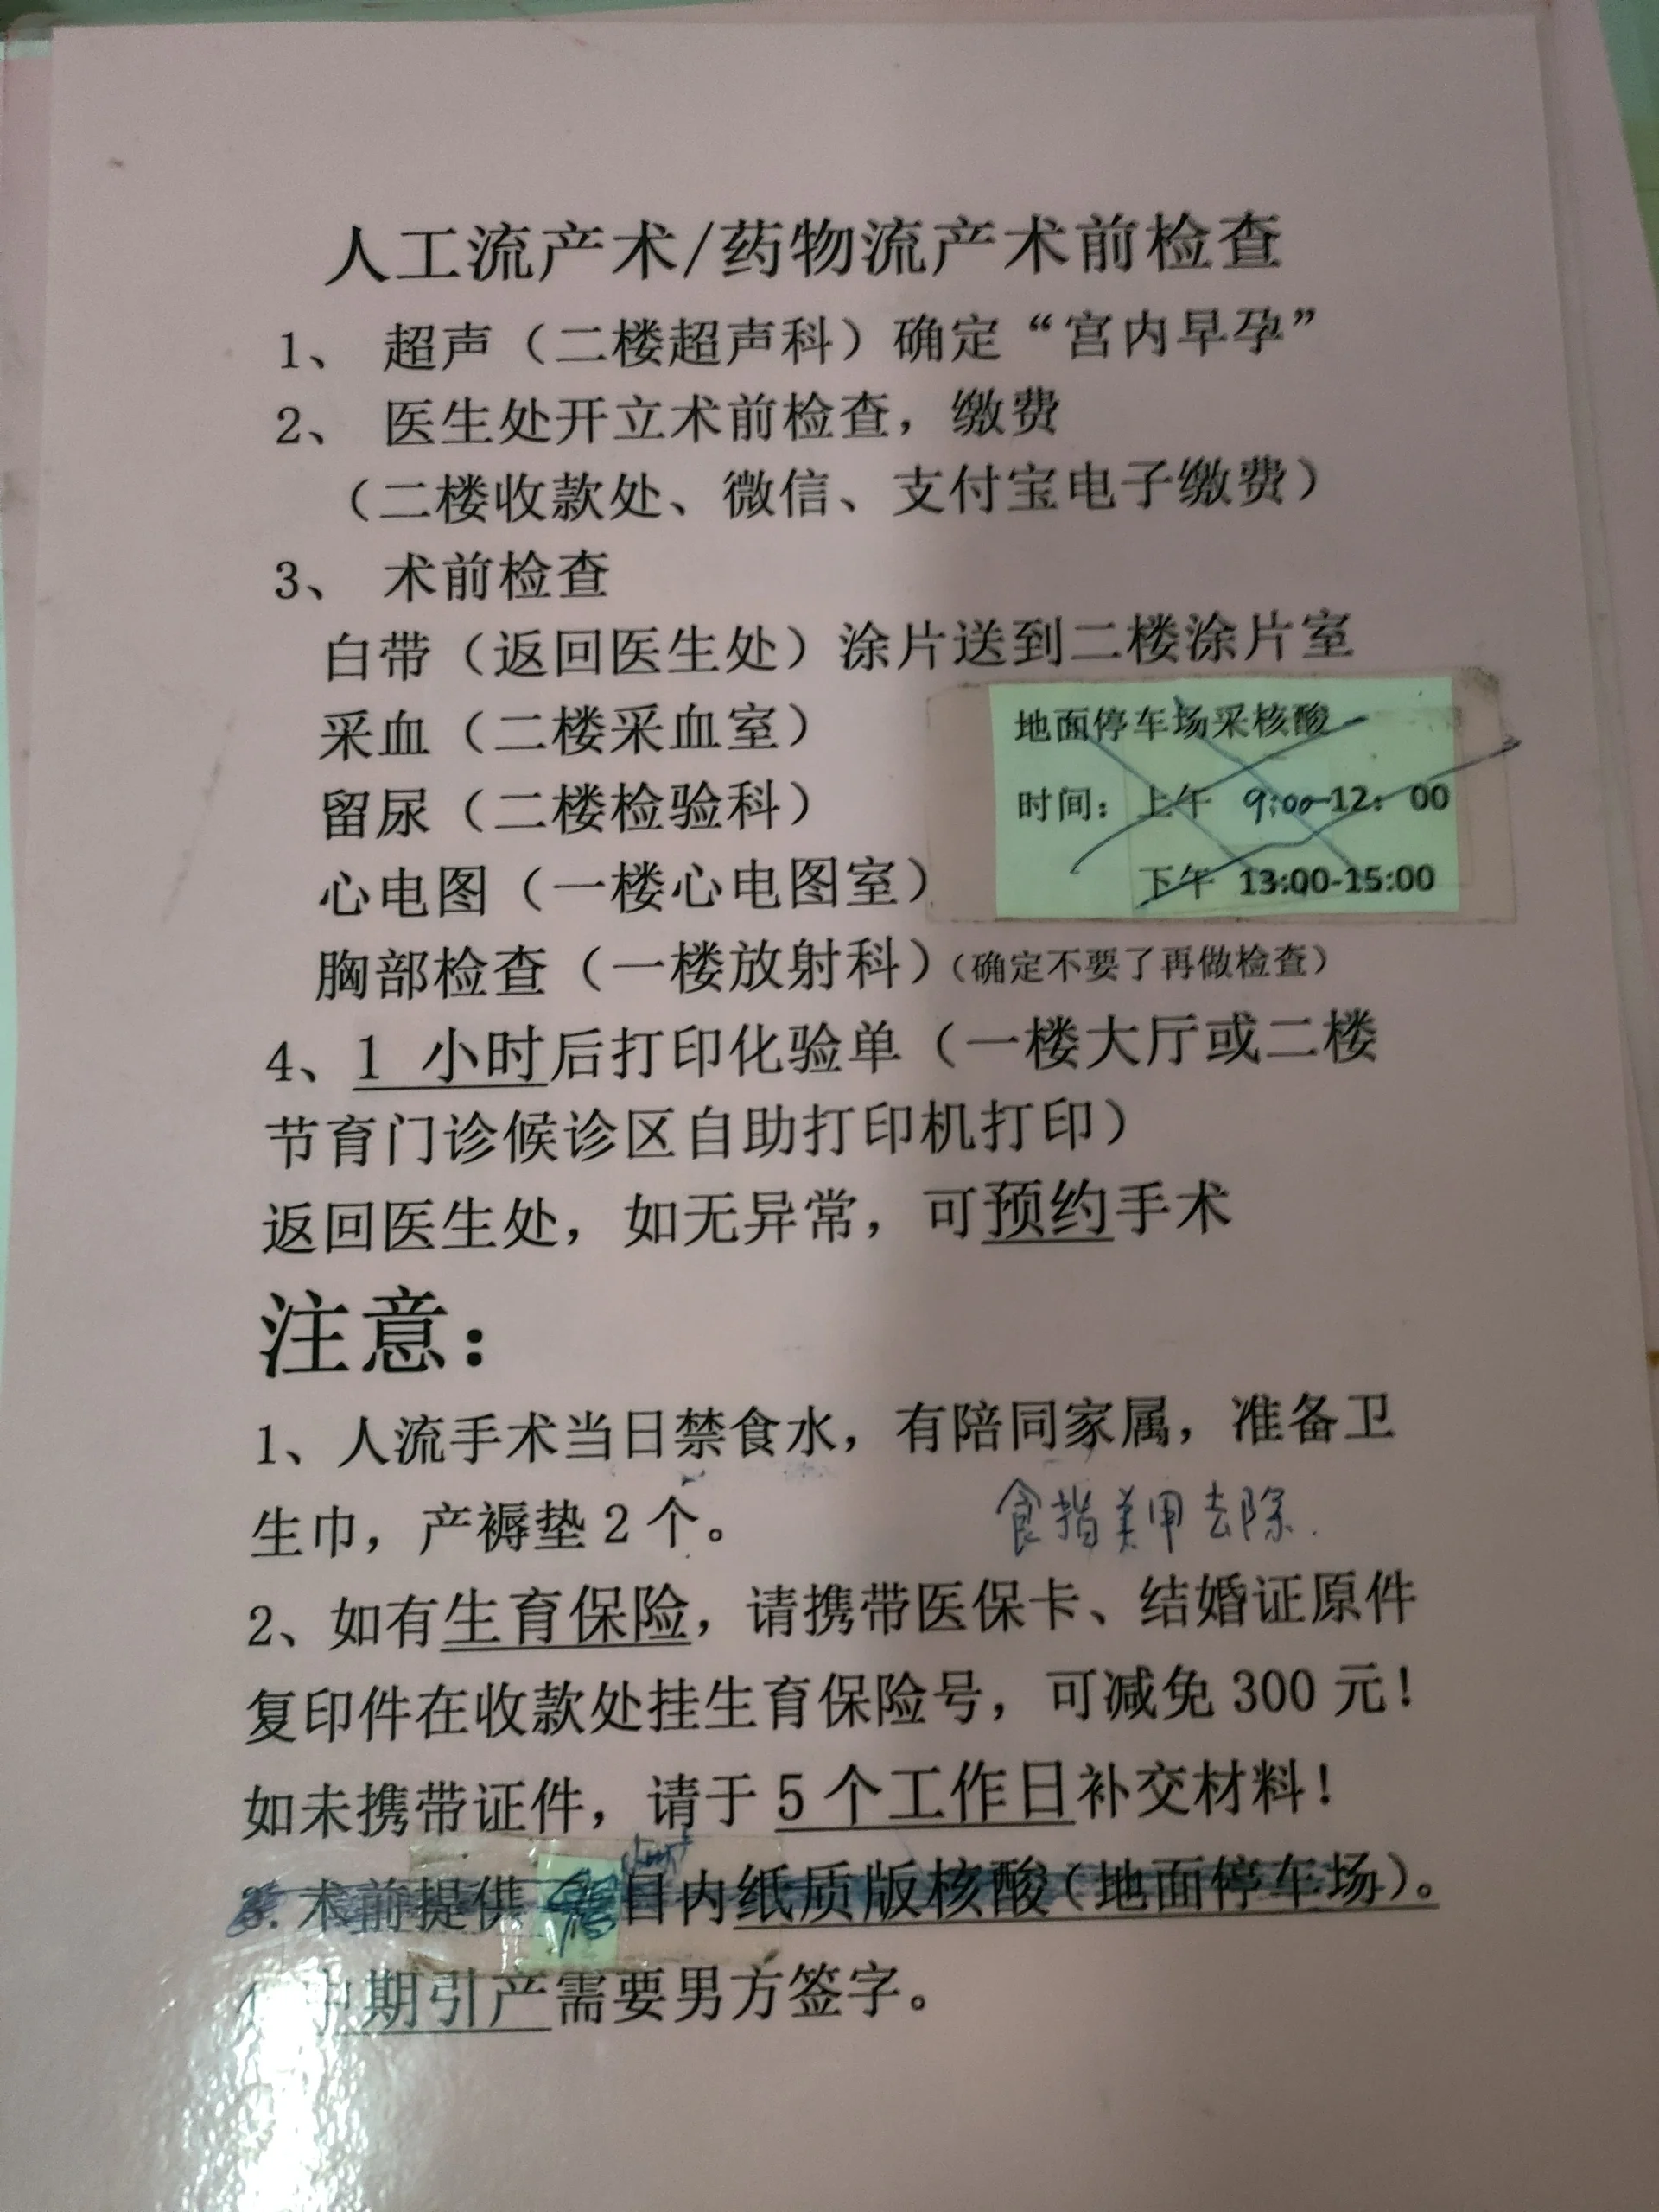 人工流产术/药物流产术前检查
1、 超声（二楼超声科）确定“宫内早孕”
2、 医生处开立术前检查，缴费
（二楼收款处、微信、支付宝电子缴费）
3、 术前检查
白带（返回医生处）涂片送到二楼涂片室
采血（二楼采血室）
地面停车场采核酸
留尿（二楼检验科）
时间：上午 9:00-12：00
心电图（一楼心电图室）
下午 13:00-15:00
胸部检查（一楼放射科）（确定不要了再做检查）
4、1 小时后打印化验单（一楼大厅或二楼
节育门诊候诊区自助打印机打印）
返回医生处，如无异常，可预约手术
注意：
1、人流手术当日禁食水，有陪同家属，准备卫
生巾，产褥垫2个。
食指美甲去除.
2、如有生育保险，请携带医保卡、结婚证原件
复印件在收款处挂生育保险号，可减免300元！
如未携带证件，请于5个工作日补交材料！
3.术前提供 日内纸质版核酸（地面停车场）。
中期引产需要男方签字。